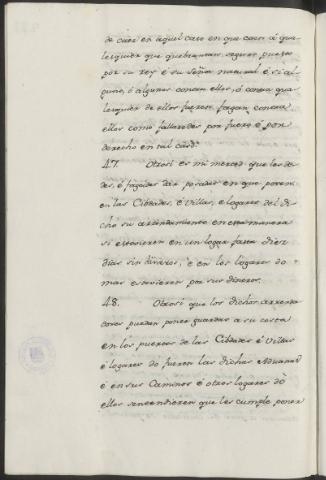 de caér en aquel caso en que caén á qua
lesquier que quebrantan seguro puesto
por su rey é su Señor natural é si al
guno, ó algunos contra ellos, ó contra qua
lesquier de ellos fueren, fagan contra
ellos como fallaredes por fuero é por
derecho en tal caso.
47. Otrosi es mi merced que les de
des, é fagades dar posadas en que posen
en las Cibdades, é Villas, é logares del di
cho su arrendamiento en esta manera
si estovieren en un logar fasta diez
dias sin dineros, é en los logares do
mas estovieren por sus dineros.
48. Otrosi que los dichos arrenda
dores puedan poner guardas a su costa
en los puertos de las Cibdades é Villas
é logares do fueren las dichas Aduanas
é en sus Caminos é otros logares dò
ellos entendieren que les cumple poner